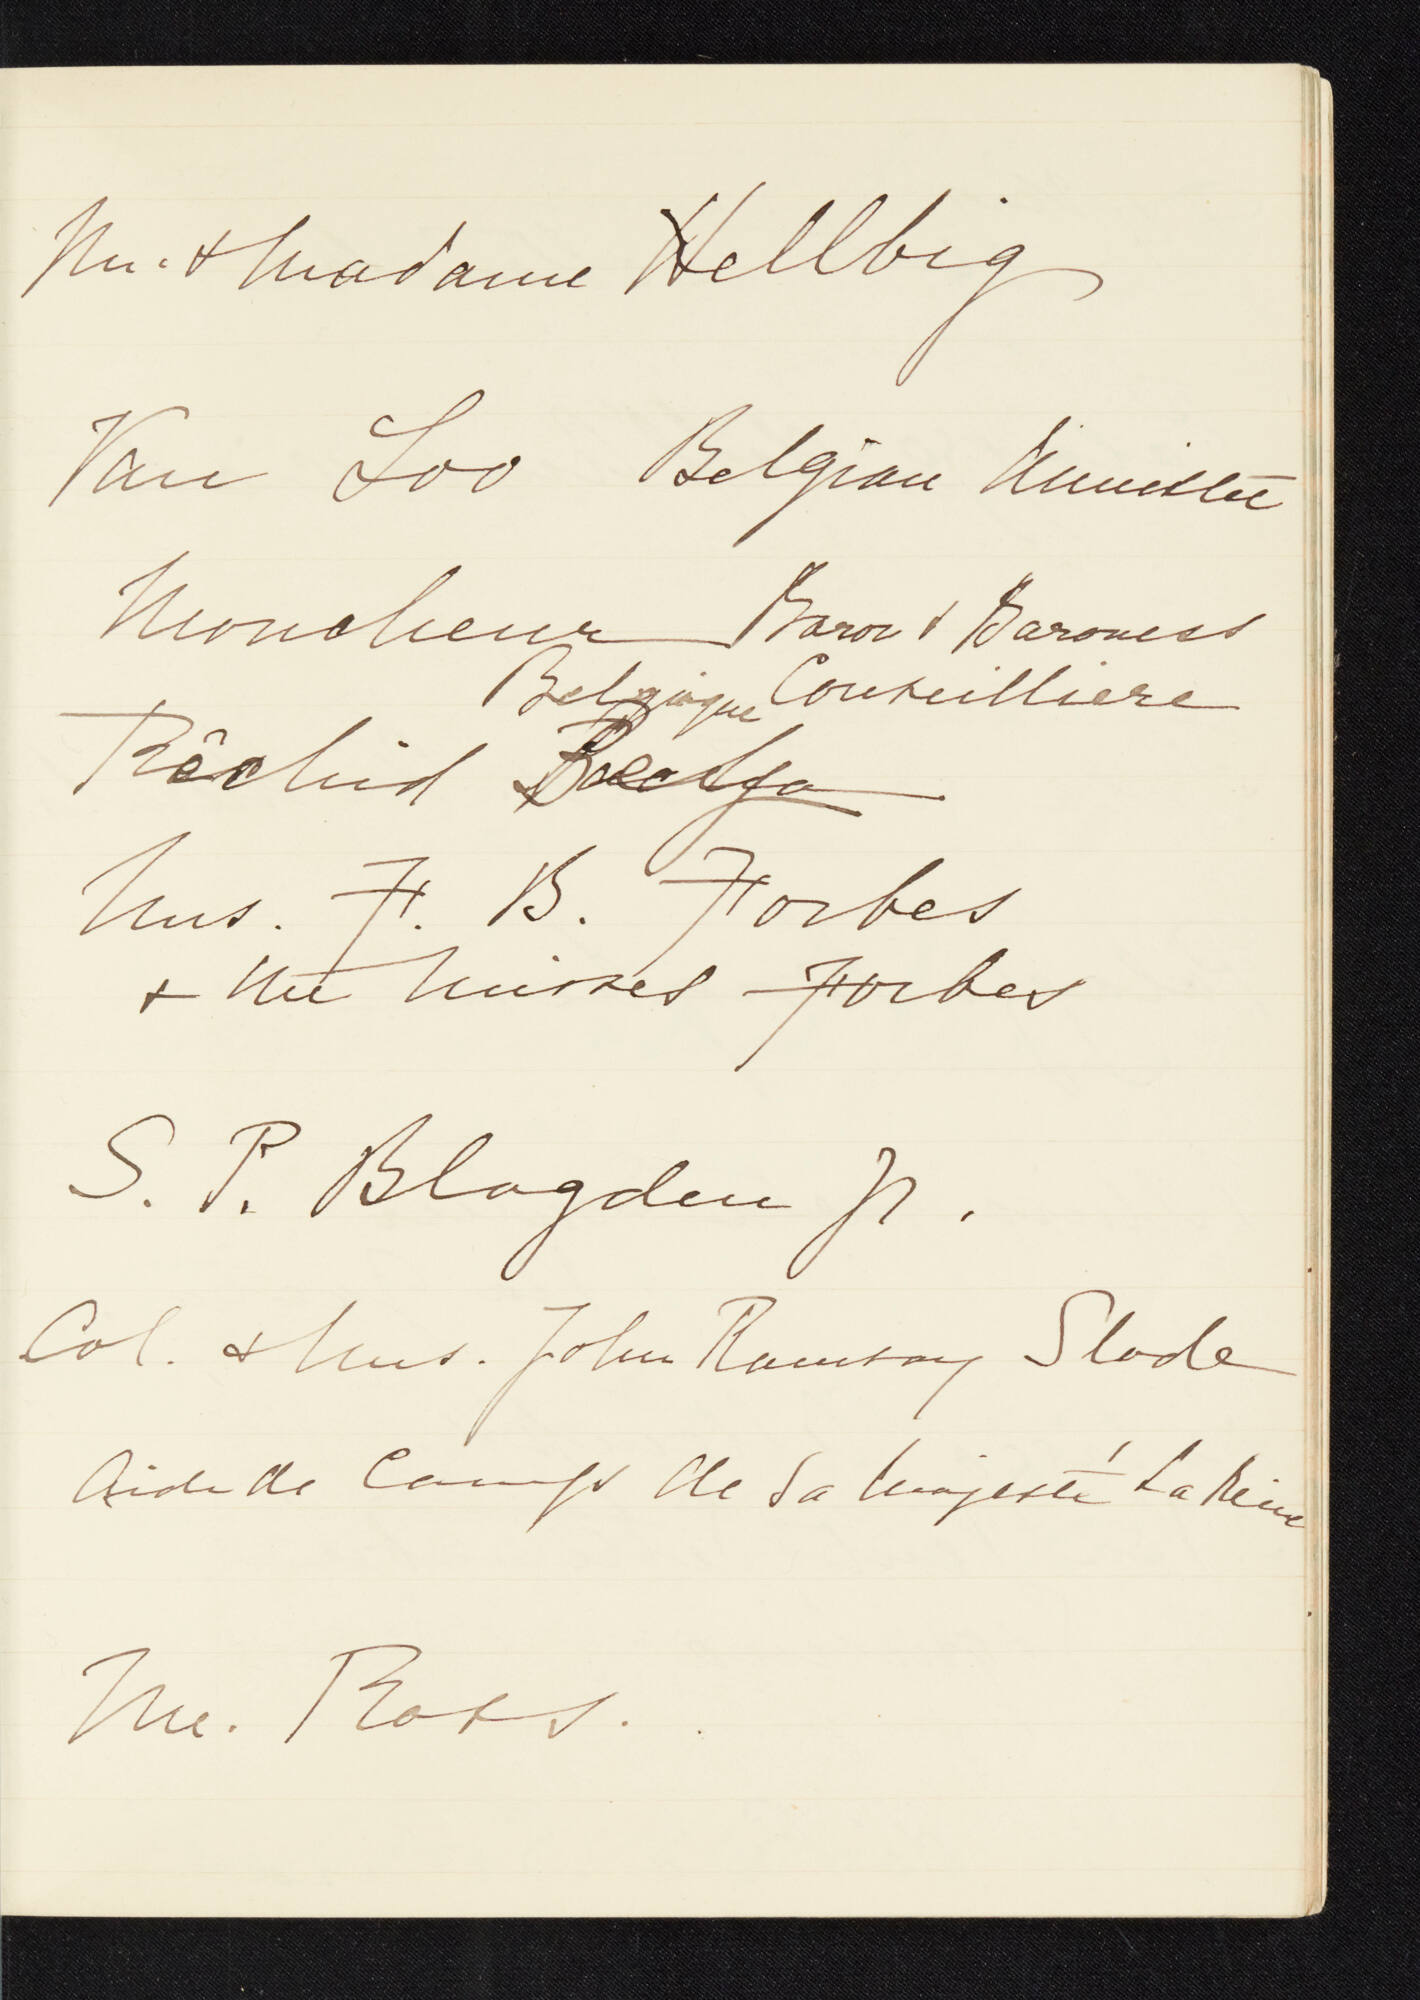 Mr. & Madame Hellbig
Van Loo Belgian Ministre
Moncheur Baron & Baroness
Belgique Conseilliere
Réchid
Mrs. F. B. Forbes
& the Misses Forbes
S. P. Blagden Jr.
Col. & Mrs. John Ramsay Slade
Aide de Camp de Sa Majesté La Reine
Mr. Ross.